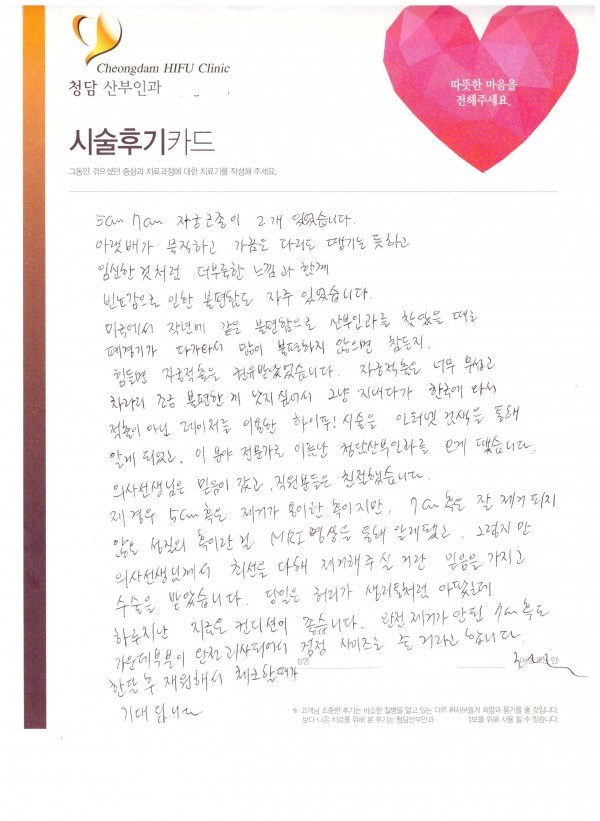 Cheongdam HIFU Clinic
청담 산부인과
따뜻한 마음을
전해주세요.
시술후기카드
그동안 겪으셨던 증상과 치료과정에 대한 치료기를 작성해 주세요.
5cm 7cm 자궁근종이 2개 있었습니다.
아랫배가 묵직하고 가끔은 다리도 땡기는 듯하고
임신한 것처럼 더부룩한 느낌과 함께
빈뇨감으로 인한 불편함도 자주 있었습니다.
미국에서 작년에 같은 불편함으로 산부인과를 찾았을 때도
폐경기가 다가와서 많이 불편하지 않으면 참든지,
힘들면 자궁적출을 권유받았었습니다. 자궁적출은 너무 무섭고
차라리 조금 불편한 게 낫지 싶어서 그냥 지내다가 한국에 와서
적출이 아닌 레이저를 이용한 하이푸! 시술을 인터넷 검색을 통해
알게 되었고, 이 분야 전문가로 이름난 청담산부인과를 오게 됐습니다.
의사선생님은 믿음이 갔고, 직원분들은 친절했습니다.
제 경우 5cm 혹은 제거가 용이한 혹이지만, 7cm 혹은 잘 제거되지
않는 성질의 혹이란 걸 MRI 영상을 통해 알게됐고, 그렇지만
의사선생님께서 최선을 다해 제거해주실 거란 믿음을 가지고
수술을 받았습니다. 당일은 허리가 생리통처럼 아팠는데
하루지난 지금은 컨디션이 좋습니다. 완전제거가 안된 7cm 혹도
가운데부분이 완전 괴사되어서 점점 사이즈도 줄 거라고 합니다.
한달 후 재원해서 체크할때가
기대됩니다
성명
※ 고객님 소중한 후기는 비슷한 질병을 앓고 있는 다른 환자분들께 희망과 용기를 줄 것입니다.
보다 나은 치료를 위해 본 후기는 청담산부인과 보를 위해 사용 될 수 있습니다.